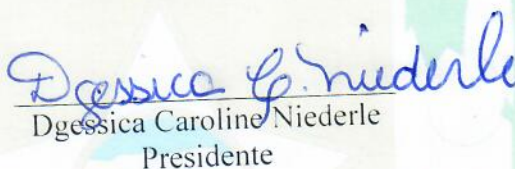 Dgessica C. Niederle
Dgessica Caroline Niederle
Presidente